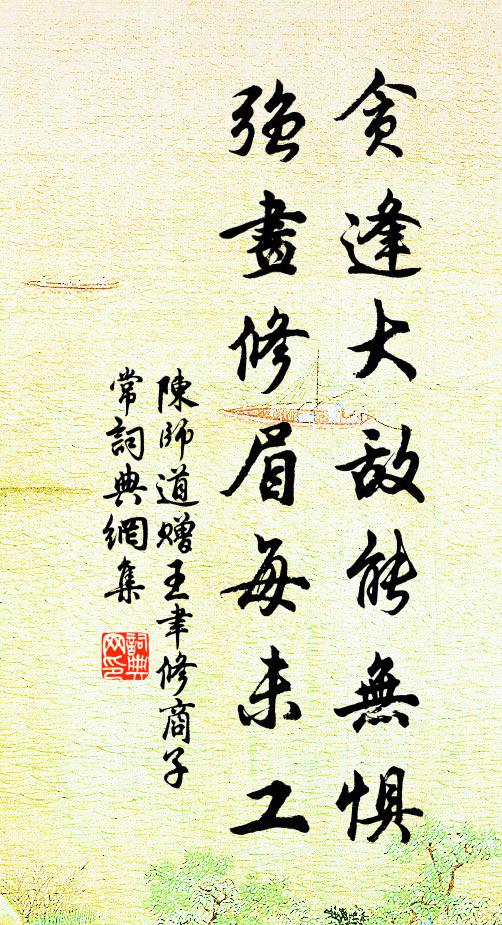 貪逢大敌能無惧
強畫修眉每未工
陳師道贈王聿修商子
常詞典網集
詞典
网印